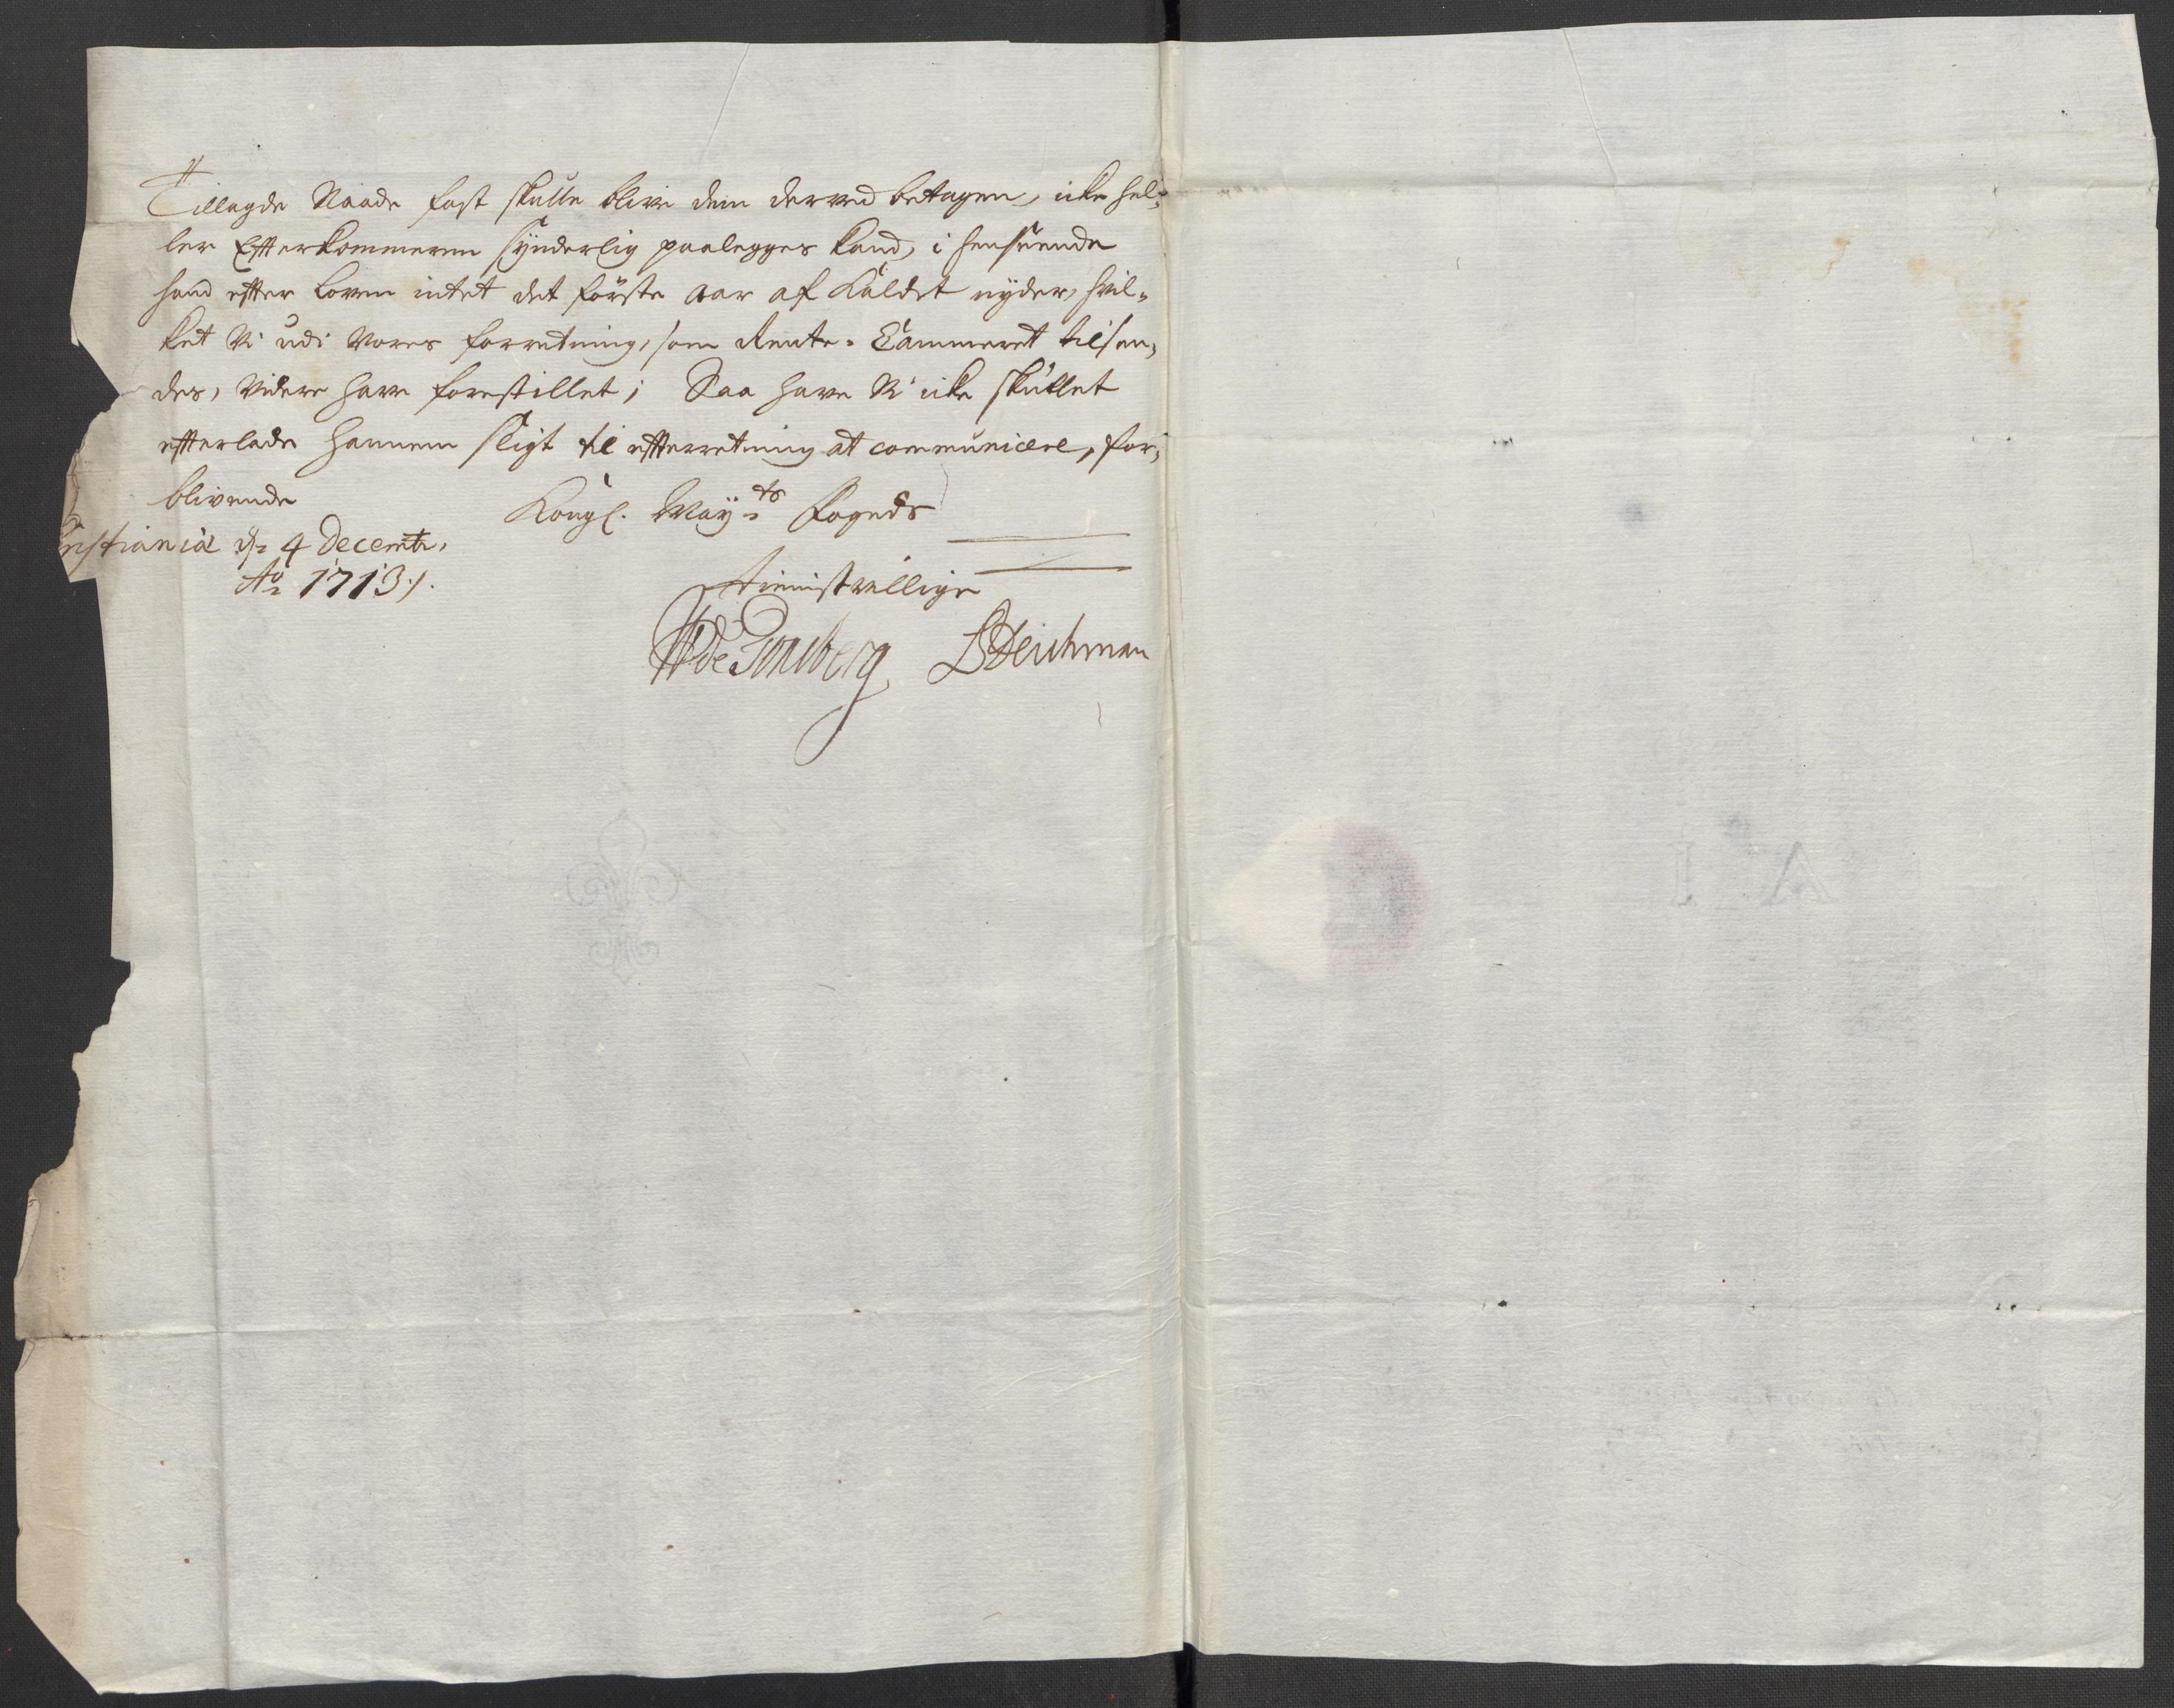 Tillagde Naade fast skulle blive dem derved betagen, icke hel-
ler Efterkommeren synderlig paalegges kand, i henseende
hand efter Loven intet det förste Aar af Kaldet nyder, hvil-
ket Vi udi Vores forretning, som Rente-Cammeret tilsen-
des, Videre have forestillet; Saa have Vi icke skullet
efterlade hannem sligt til efterretning at communicere, for-
blivende
Kongl. May:ts Fogeds
ristiania d: 4 Decemb:
Ao 1713.
tienistvillige
WdeTonsberg BDeichman